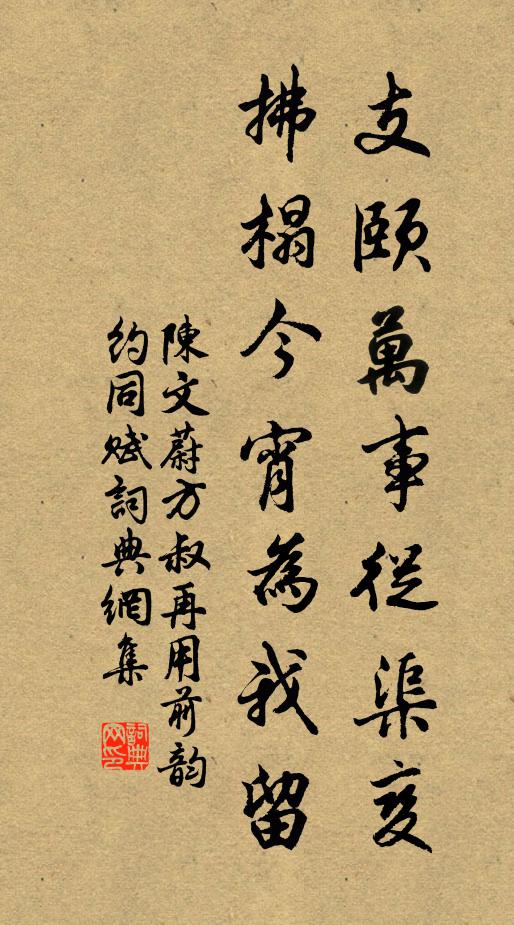 支頤萬事從渠变
拂榻今宵為我留
陳文蔚方叔再用前韵
約同賦詞典網集
詞典网印